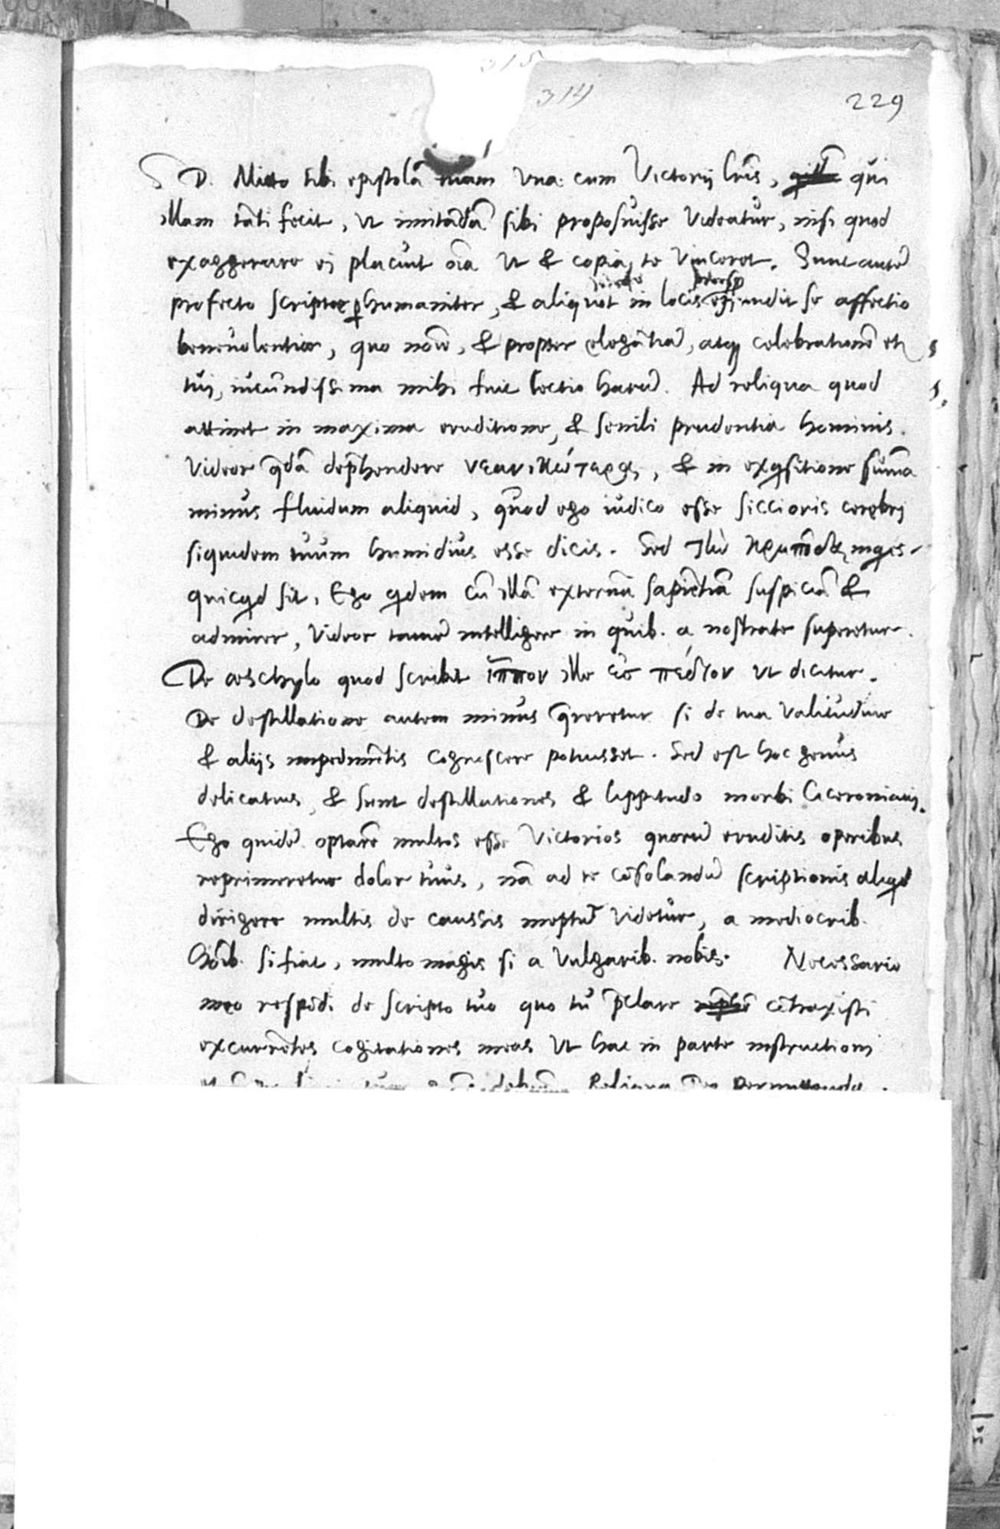 315
314
229
S D. Mitto tibi epistolā tuam una cum Victorij lrīs, qui
illam tāti fecit, ut imitādā sibi proposuisse videatur, nisi quod
exaggerare ei placuit oīa ut & copia te vinceret. Sunt autē
profecto scriptae ꝑhumaniter, & aliquot in locis se affectio
benevolentiae, quo noīe, & propter elegātiā, atq celebrationē etiā
tui, iucundissima mihi fuit lectio harū. Ad reliqua quod
attinet in maxima eruditione, & senili prudentia hominis.
Videor qdā dep̄hendere νεανικώτερα, & in exqsitione summa
minus fluidum aliquid, quod ego iudico esse siccioris cerebri
siquidem tuum humidius esse dicis. Sed
quicqd sit, Ego qdem cū illā externā sapiētiā suspiciā &
admirer, Videor tamē intelligere in quib. a nostrate superetur.
De aeschylo quod scribit ἵππον ille εἰς πεδίον ut dicitur.
De destillatione autem minus quereretur si de tua valitudine
& alijs impedimētis cognoscere potuisset. Sed est hoc genus
delicatius, & sunt destillationes & lippitudo morbi Ciceroniani.
Ego quidē optarē multos esse Victorios quorū eruditis operibus
reprimeretur dolor tuus, nā ad te cōsolandū scriptionis aliqd
dirigere multis de caussis ineptū videtur, a mediocrib.
Hoīb. si fiat, multo magis si a vulgarib. nobis. Necessario
meo respōdi de scripto tuo quo tu p̄clare cōtraxisti
excurrētes cogitationes meas ut hac in parte instructioni